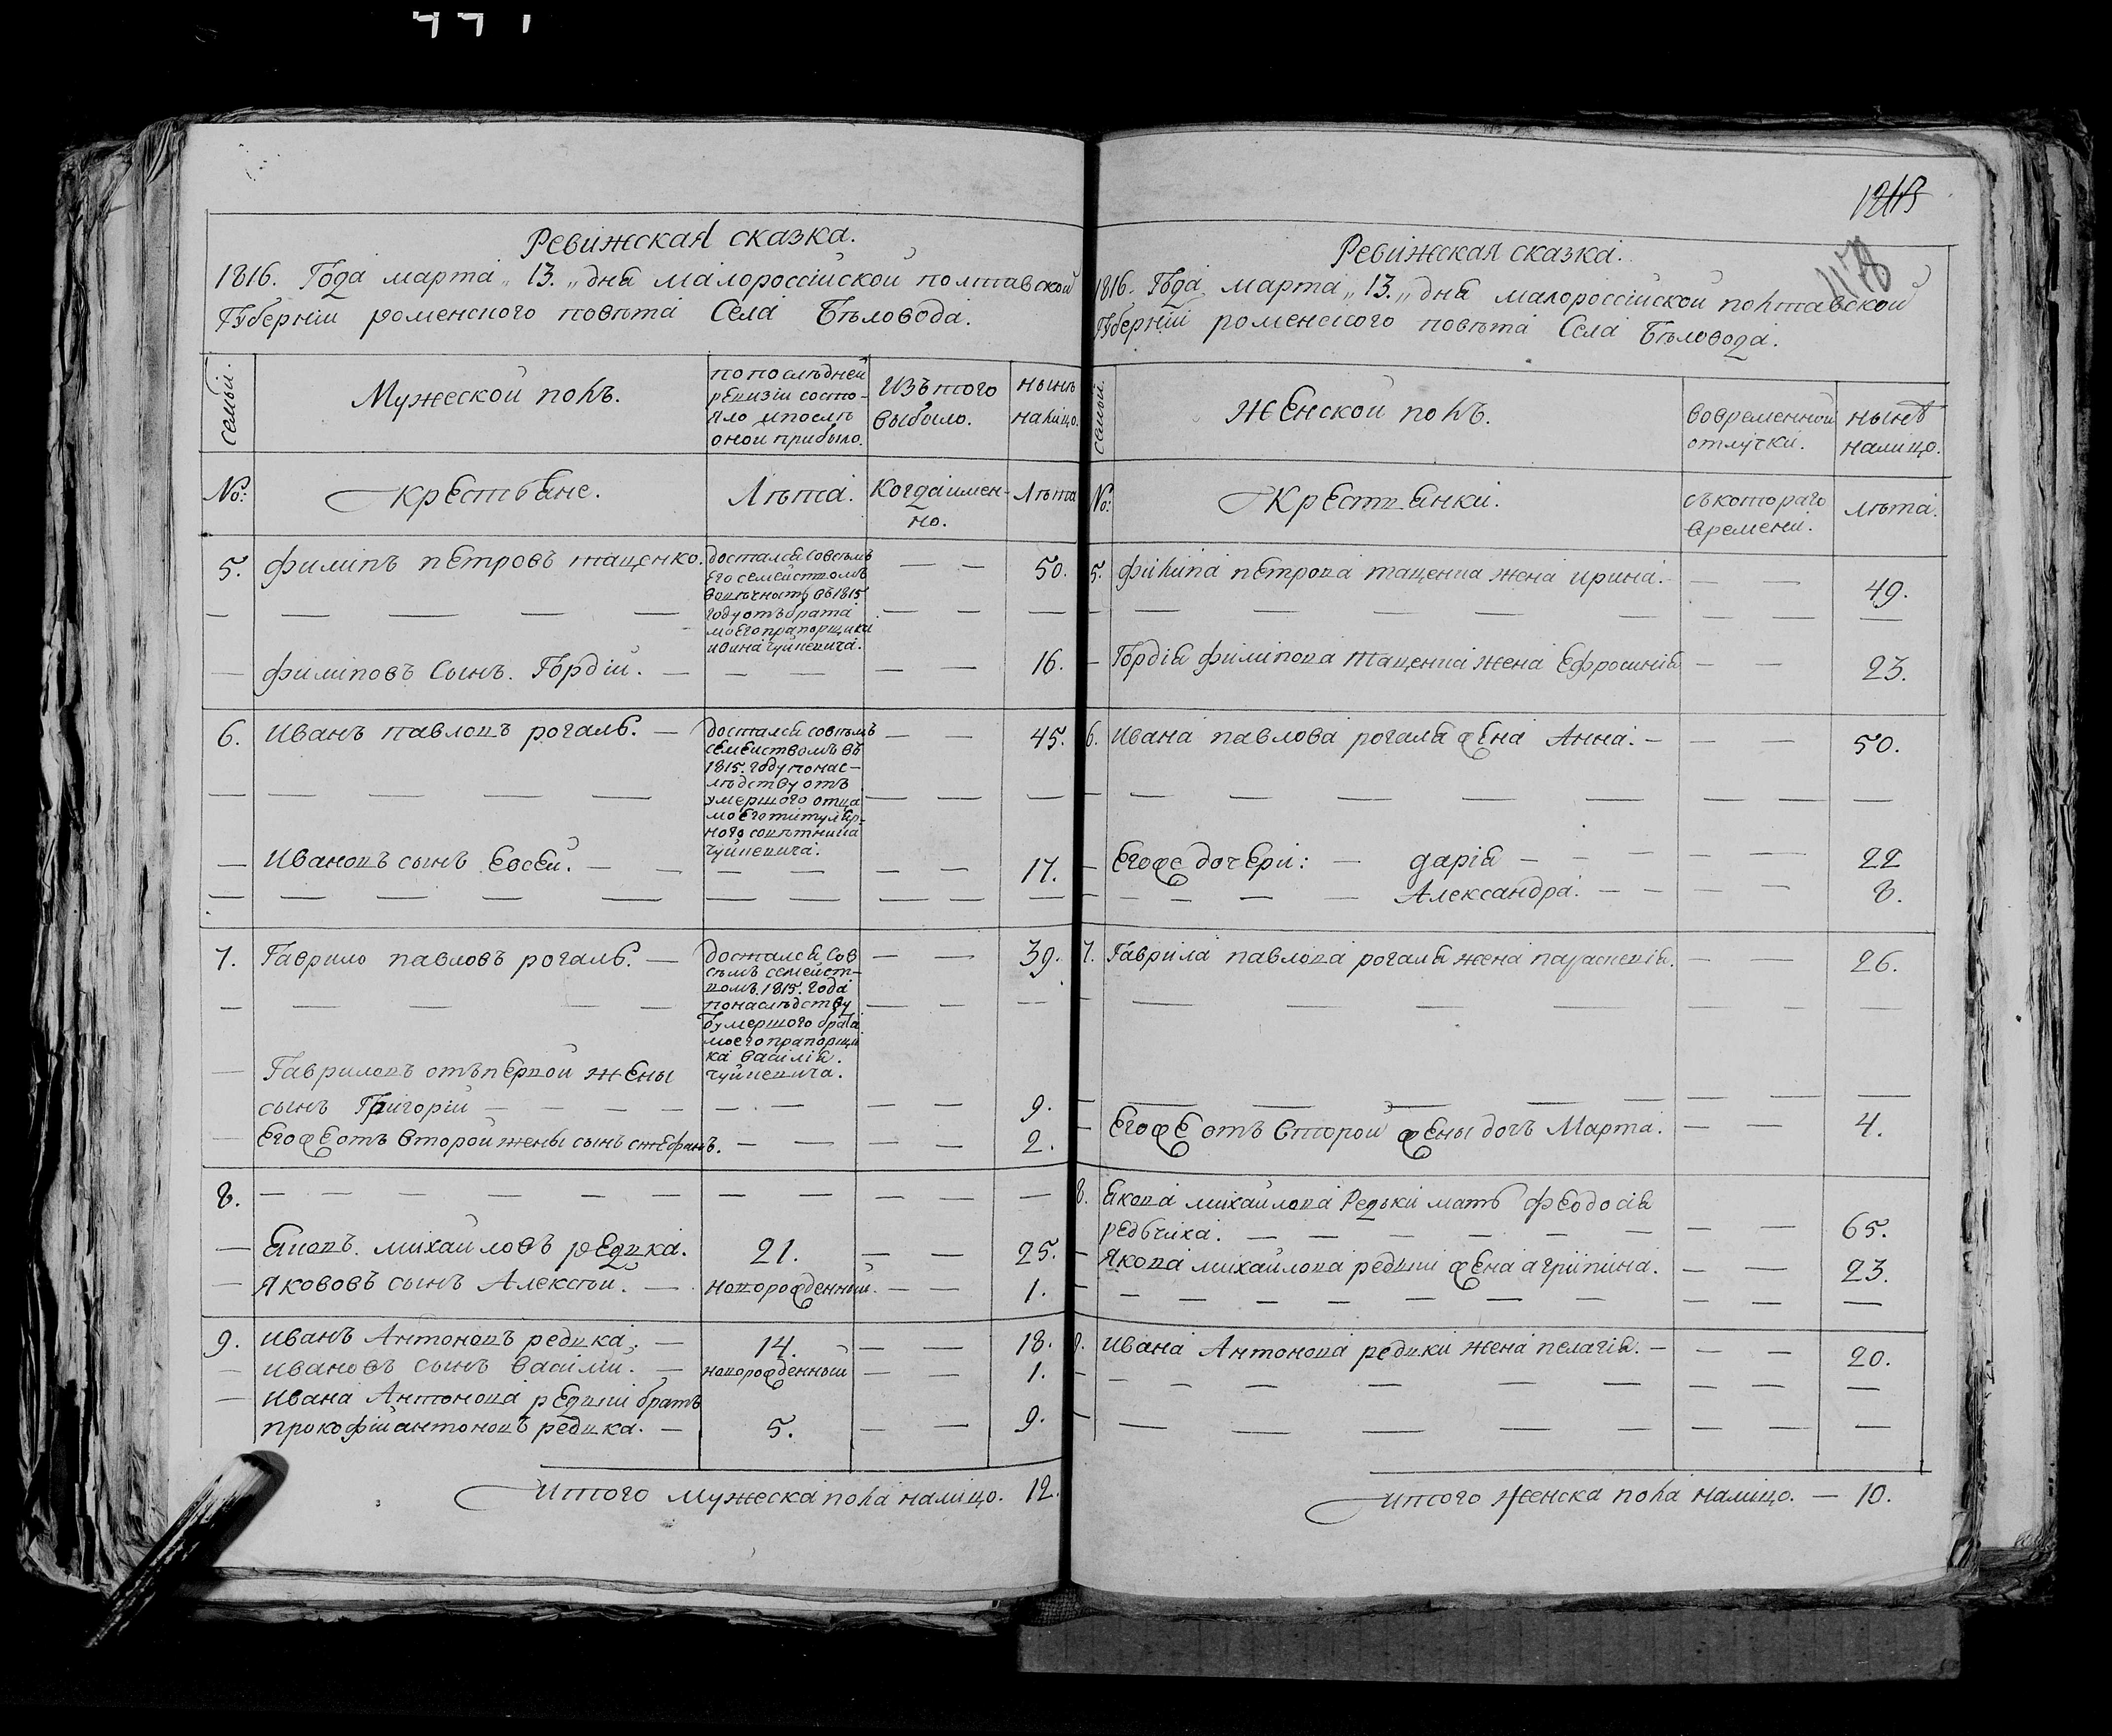 Ревижская сказка.
1816. Года марта „ 13. „ дня малороссійской полтавской
Губерніи роменского повѣта Села Бѣловода.
семьи.
Мужеской полъ.
попослѣдней
ревизіи состо-
яло ипослѣ
оной прибыло.
Изъ того
выбыло.
нынѣ
налицо.
No:
крестьяне.
Лѣта.
Когда имен-
но.
Лѣта
5. филипъ петровъ тащенко.
достался совсѣмъ
его семействомъ
ввѣчность въ 1815
году отъ брата
моего прапорщика
ивана чуйкевича.
50.
филиповъ Сынъ. Гордій. 16.
6. Иванъ павловъ рогаль.
достался совсѣмъ
семействомъ въ
1815. году понас-
лѣдству отъ
умершого отца
моего титуляр-
ного совѣтника
чуйкевича.
45.
Ивановъ сынъ Евсей. 17.
7. Гаврило павловъ рогаль.
достался Сов
сѣмъ семейст-
вомъ 1815. года
понаслѣдству
умершого брата
моего прапорщи
ка василія
чуйкевича.
39.
Гавриловъ отъ первой жены
сынъ Григорій 9.
Егоже отъ второй жены сынъ стефанъ. 2.
8.
Яковъ. михайловъ редка. 21. 25.
Яковов​ъ сынъ Алексѣй. новорожденный. 1.
9. иванъ Антоновъ редка. 14. 18.
ивановъ сынъ василій. новорожденный 1.
Ивана Антонова редки братъ
прокофій антоновъ редка. 5. 9.
Итого мужеска пола налицо. 12.
Ревижская сказка.
1816. Года марта „ 13. „ дня малороссійской полтавской
Губерніи роменского повѣта Села Бѣловода.
семьи.
Женской полъ.
вовременной
отлучки.
нынѣ
налицо.
No:
Крестянки.
съкотораго
времени.
лѣта.
5. филипа петрова тащенка жена ирина. 49.
Гордія филипова тащенка жена Ефросинія 23.
6. Ивана павлова рогаля жена Анна. 50.
Егоже дочери: дарія 22
Александра. 8.
7. Гаврила павлова рогаля жена параскевія. 26.
Егоже отъ второй жены дочь Марта. 4.
8. Якова михайлова Редьки мать феодосія
редьчиха. 65.
Якова михайлова редки жена агрипина. 23.
9. Ивана Антонова редки жена пелагія. 20.
Итого женска пола налицо. — 10.